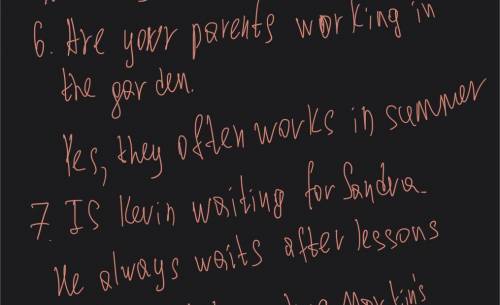 6. Are your parents working in
the garden.
Yes, they often works in summer
7. Is Kevin waiting for Sandra.
He always waits after lessons
Martin's